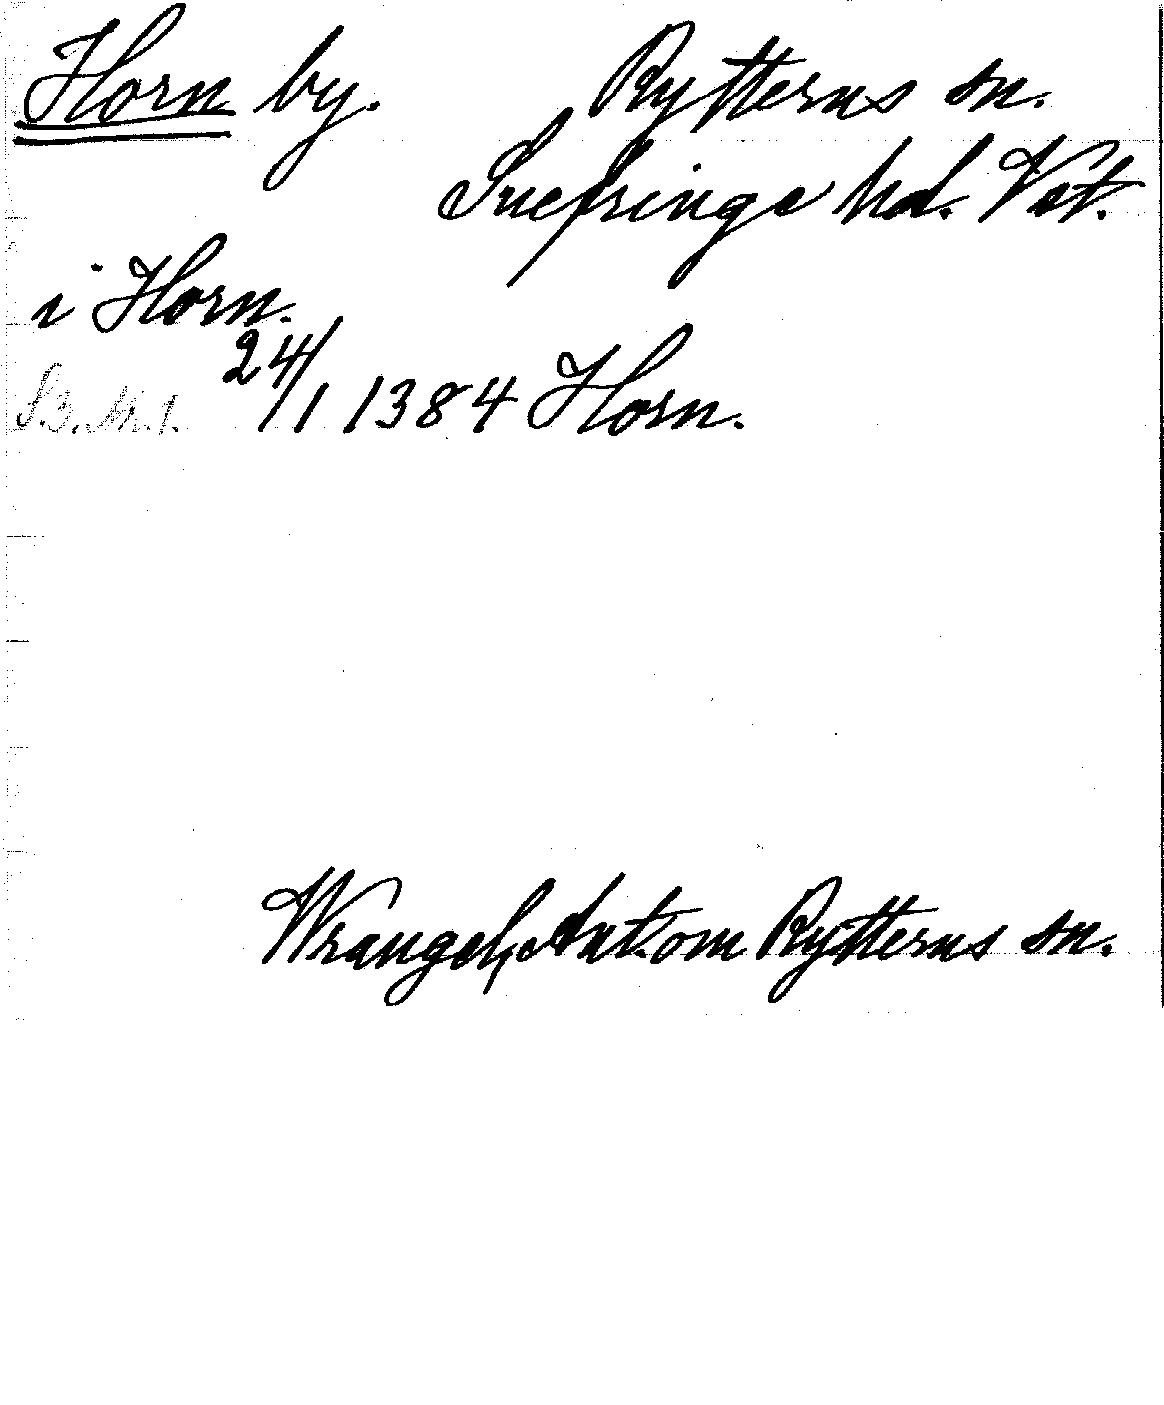 Horn by. Rytterns sn.
Snefringe hd. Vst.
i Horn.
24/1 1384 Horn.
Wrangel, Ant. om Rytterns sn.